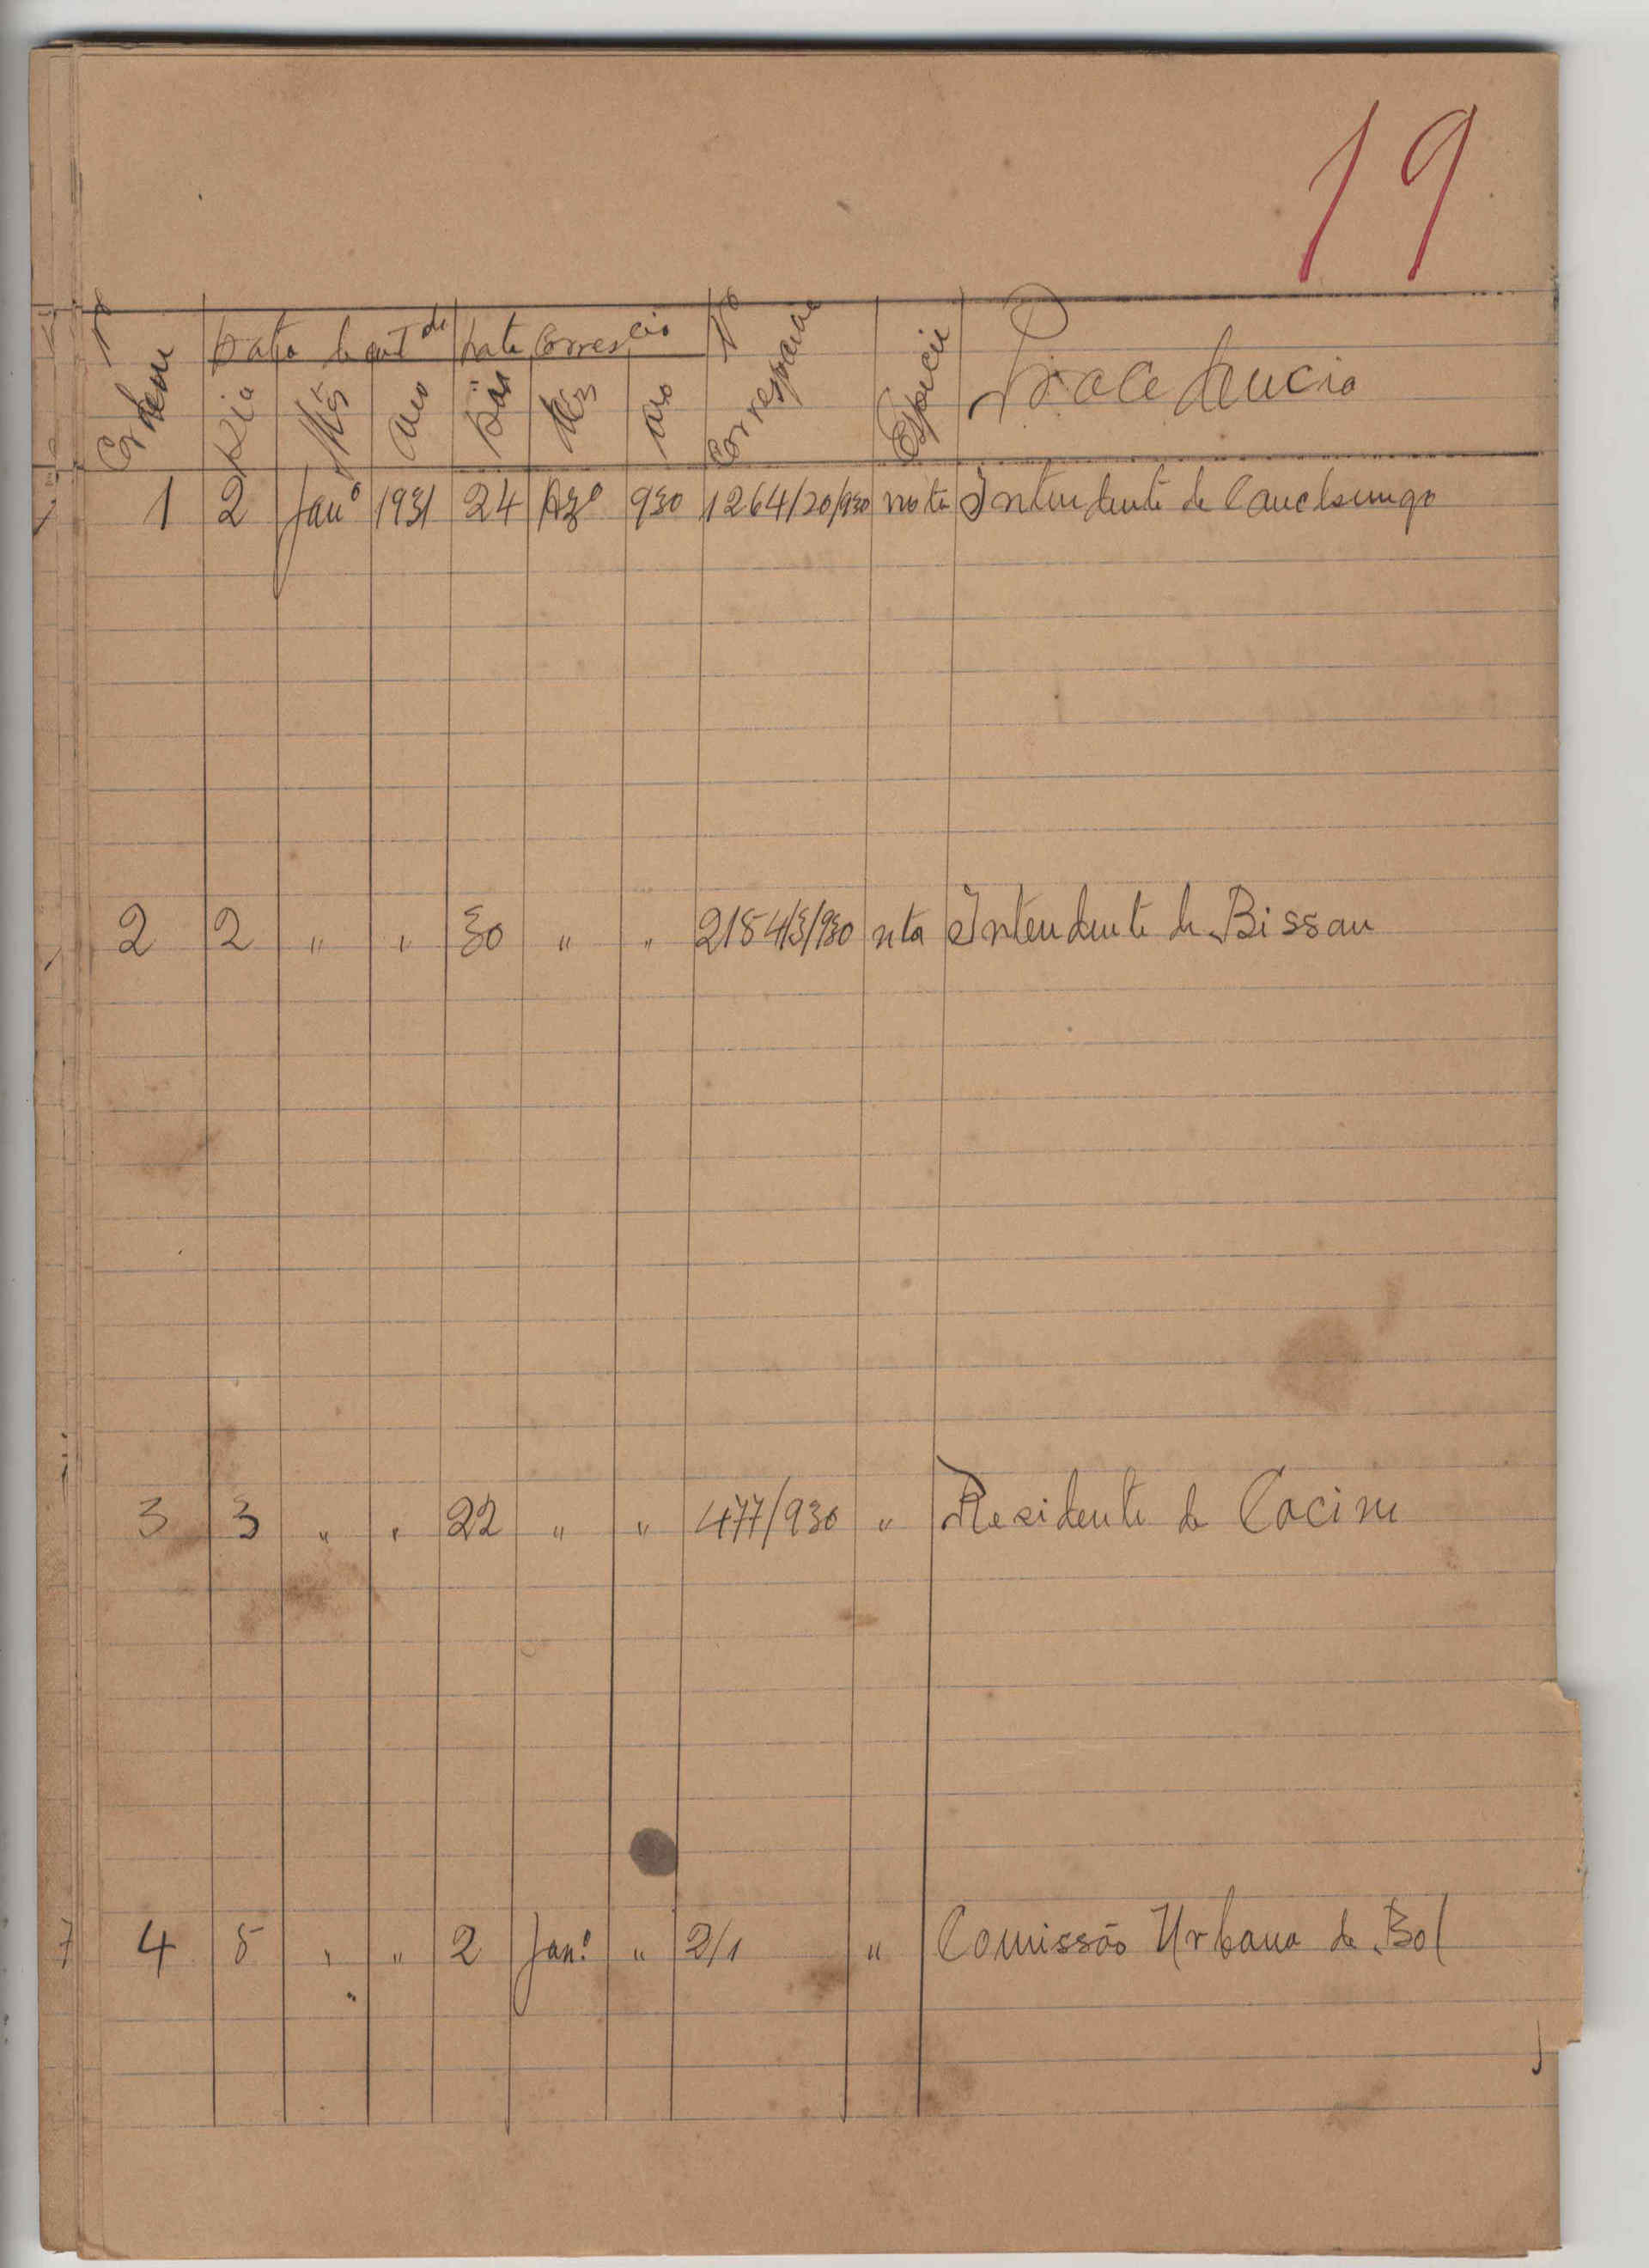 19
Nº Ordem
Data
Data Corres cia
Nº Correspencia
Especie
Procedencia
Dia Mês Ano Dia Mês ano
1 2 Janº 1931 24 Dzº 930 1264/20/930 nota Intendente de Canchungo
2 2 " " 30 " " 2154/3/930 nta Intendente de Bissau
3 3 " " 22 " " 477/930 " Residente de Cacine
4 5 " " 2 Jan.º " 2/1 " Comissão Urbana de Bol